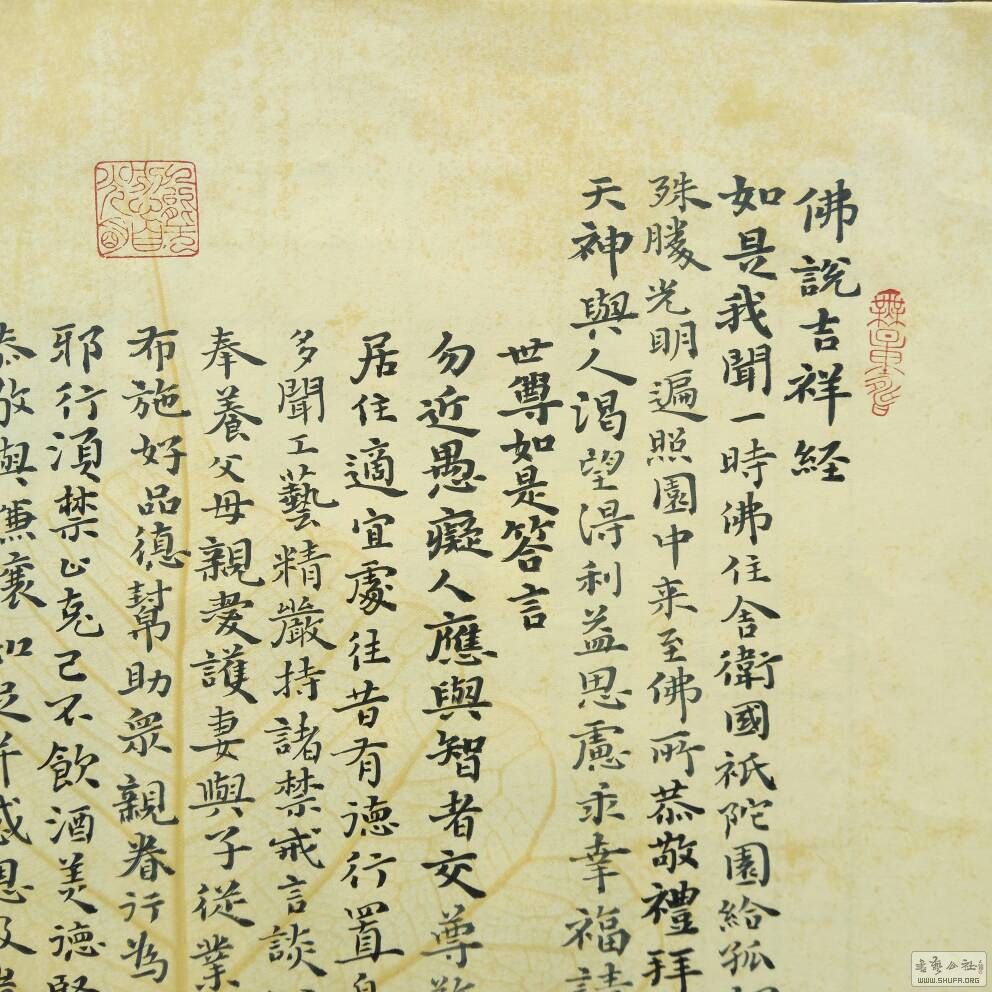 佛說吉祥经
如是我聞一時佛住舍衛國祇陀園給孤
殊勝光明遍照園中来至佛所恭敬禮拜
天神與人渴望得利益思慮求幸福請
世尊如是答言
勿近愚癡人應與智者交尊敬
居住適宜處往昔有德行置身
多聞工藝精嚴持諸禁戒言談
奉養父母親愛護妻與子從業
布施好品德幫助眾親眷行為
邪行須禁止克己不飲酒美德堅
恭敬與謙讓知足并感恩及
WWW.SHUFA.ORG